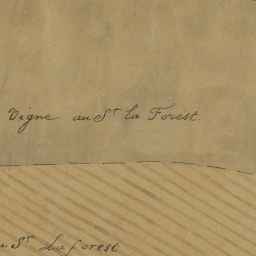 Vigne au Sr la Forest.
u Sr la forest